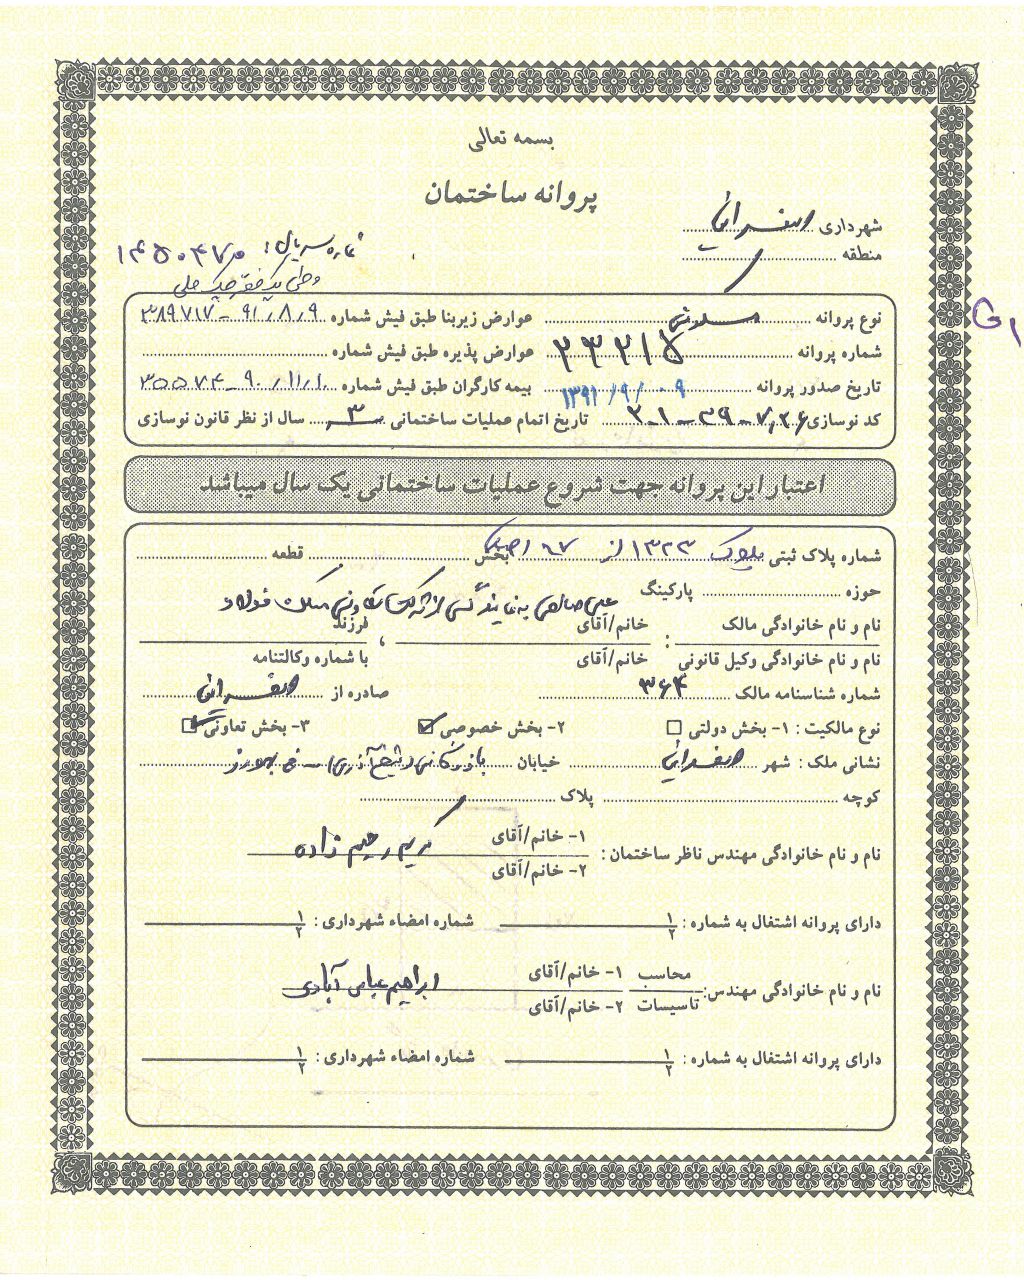 بسمه تعالی
پروانه ساختمان
شهرداری اسفراین
منطقه
شماره سریال: ۱۴۵۰۴۷۰
طی یک فقره چک ملی
نوع پروانه مسکونی عوارض زیربنا طبق فیش شماره ۳۸۹۷۱۷-۹۱/۸/۹
شماره پروانه ۲۳۲۱۵ عوارض پذیره طبق فیش شماره
تاریخ صدور پروانه ۱۳۹۱/۹/۰۹ بیمه کارگران طبق فیش شماره ۳۵۵۷۴-۹۰/۱۱/۱۰
کد نوسازی ۲-۱-۳۹-۷,۲۶ تاریخ اتمام عملیات ساختمانی ۳ سال از نظر قانون نوسازی
اعتبار این پروانه جهت شروع عملیات ساختمانی یک سال میباشد
شماره پلاک ثبتی پلاک ۱۳۲۳ از ۸۷ اصلی بخش قطعه
حوزه پارکینگ
علی صالحی به نمایندگی از شرکت تعاونی مسکن فولاد
نام و نام خانوادگی مالک : خانم/آقای ، فرزند
نام و نام خانوادگی وکیل قانونی خانم/آقای با شماره وکالتنامه
شماره شناسنامه مالک ۳۶۴ صادره از اسفراین
نوع مالکیت : ۱- بخش دولتی ۲- بخش خصوصی ۳- بخش تعاونی
نشانی ملک : شهر اسفراین خیابان بازرگانی (شیخ آذری) - خ بهورز
کوچه پلاک
نام و نام خانوادگی مهندس ناظر ساختمان : ۱- خانم/آقای کریم رحیم زاده
۲- خانم/آقای
دارای پروانه اشتغال به شماره : ۱ ۲ شماره امضاء شهرداری : ۱ ۲
نام و نام خانوادگی مهندس: محاسب ۱- خانم/آقای ابراهیم عباس آبادی
تاسیسات ۲- خانم/آقای
دارای پروانه اشتغال به شماره : ۱ ۲ شماره امضاء شهرداری : ۱ ۲